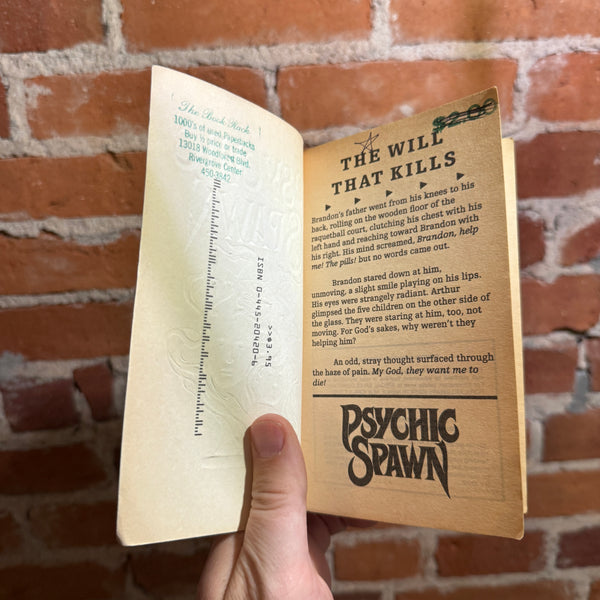 The Book Rack
1000's of used Paperbacks
Buy ½ price or trade
13018 Woodforest Blvd.
Rivergrove Center
450-3942
ISBN 0-445-20420-6
>>$3.95
$2.00
THE WILL
THAT KILLS
Brandon's father went from his knees to his
back, rolling on the wooden floor of the
raquetball court, clutching his chest with his
left hand and reaching toward Brandon with
his right. His mind screamed, Brandon, help
me! The pills! but no words came out.
Brandon stared down at him,
unmoving, a slight smile playing on his lips.
His eyes were strangely radiant. Arthur
glimpsed the five children on the other side of
the glass. They were staring at him, too, not
moving. For God's sakes, why weren't they
helping him?
An odd, stray thought surfaced through
the haze of pain. My God, they want me to
die!
PSYCHIC
SPAWN